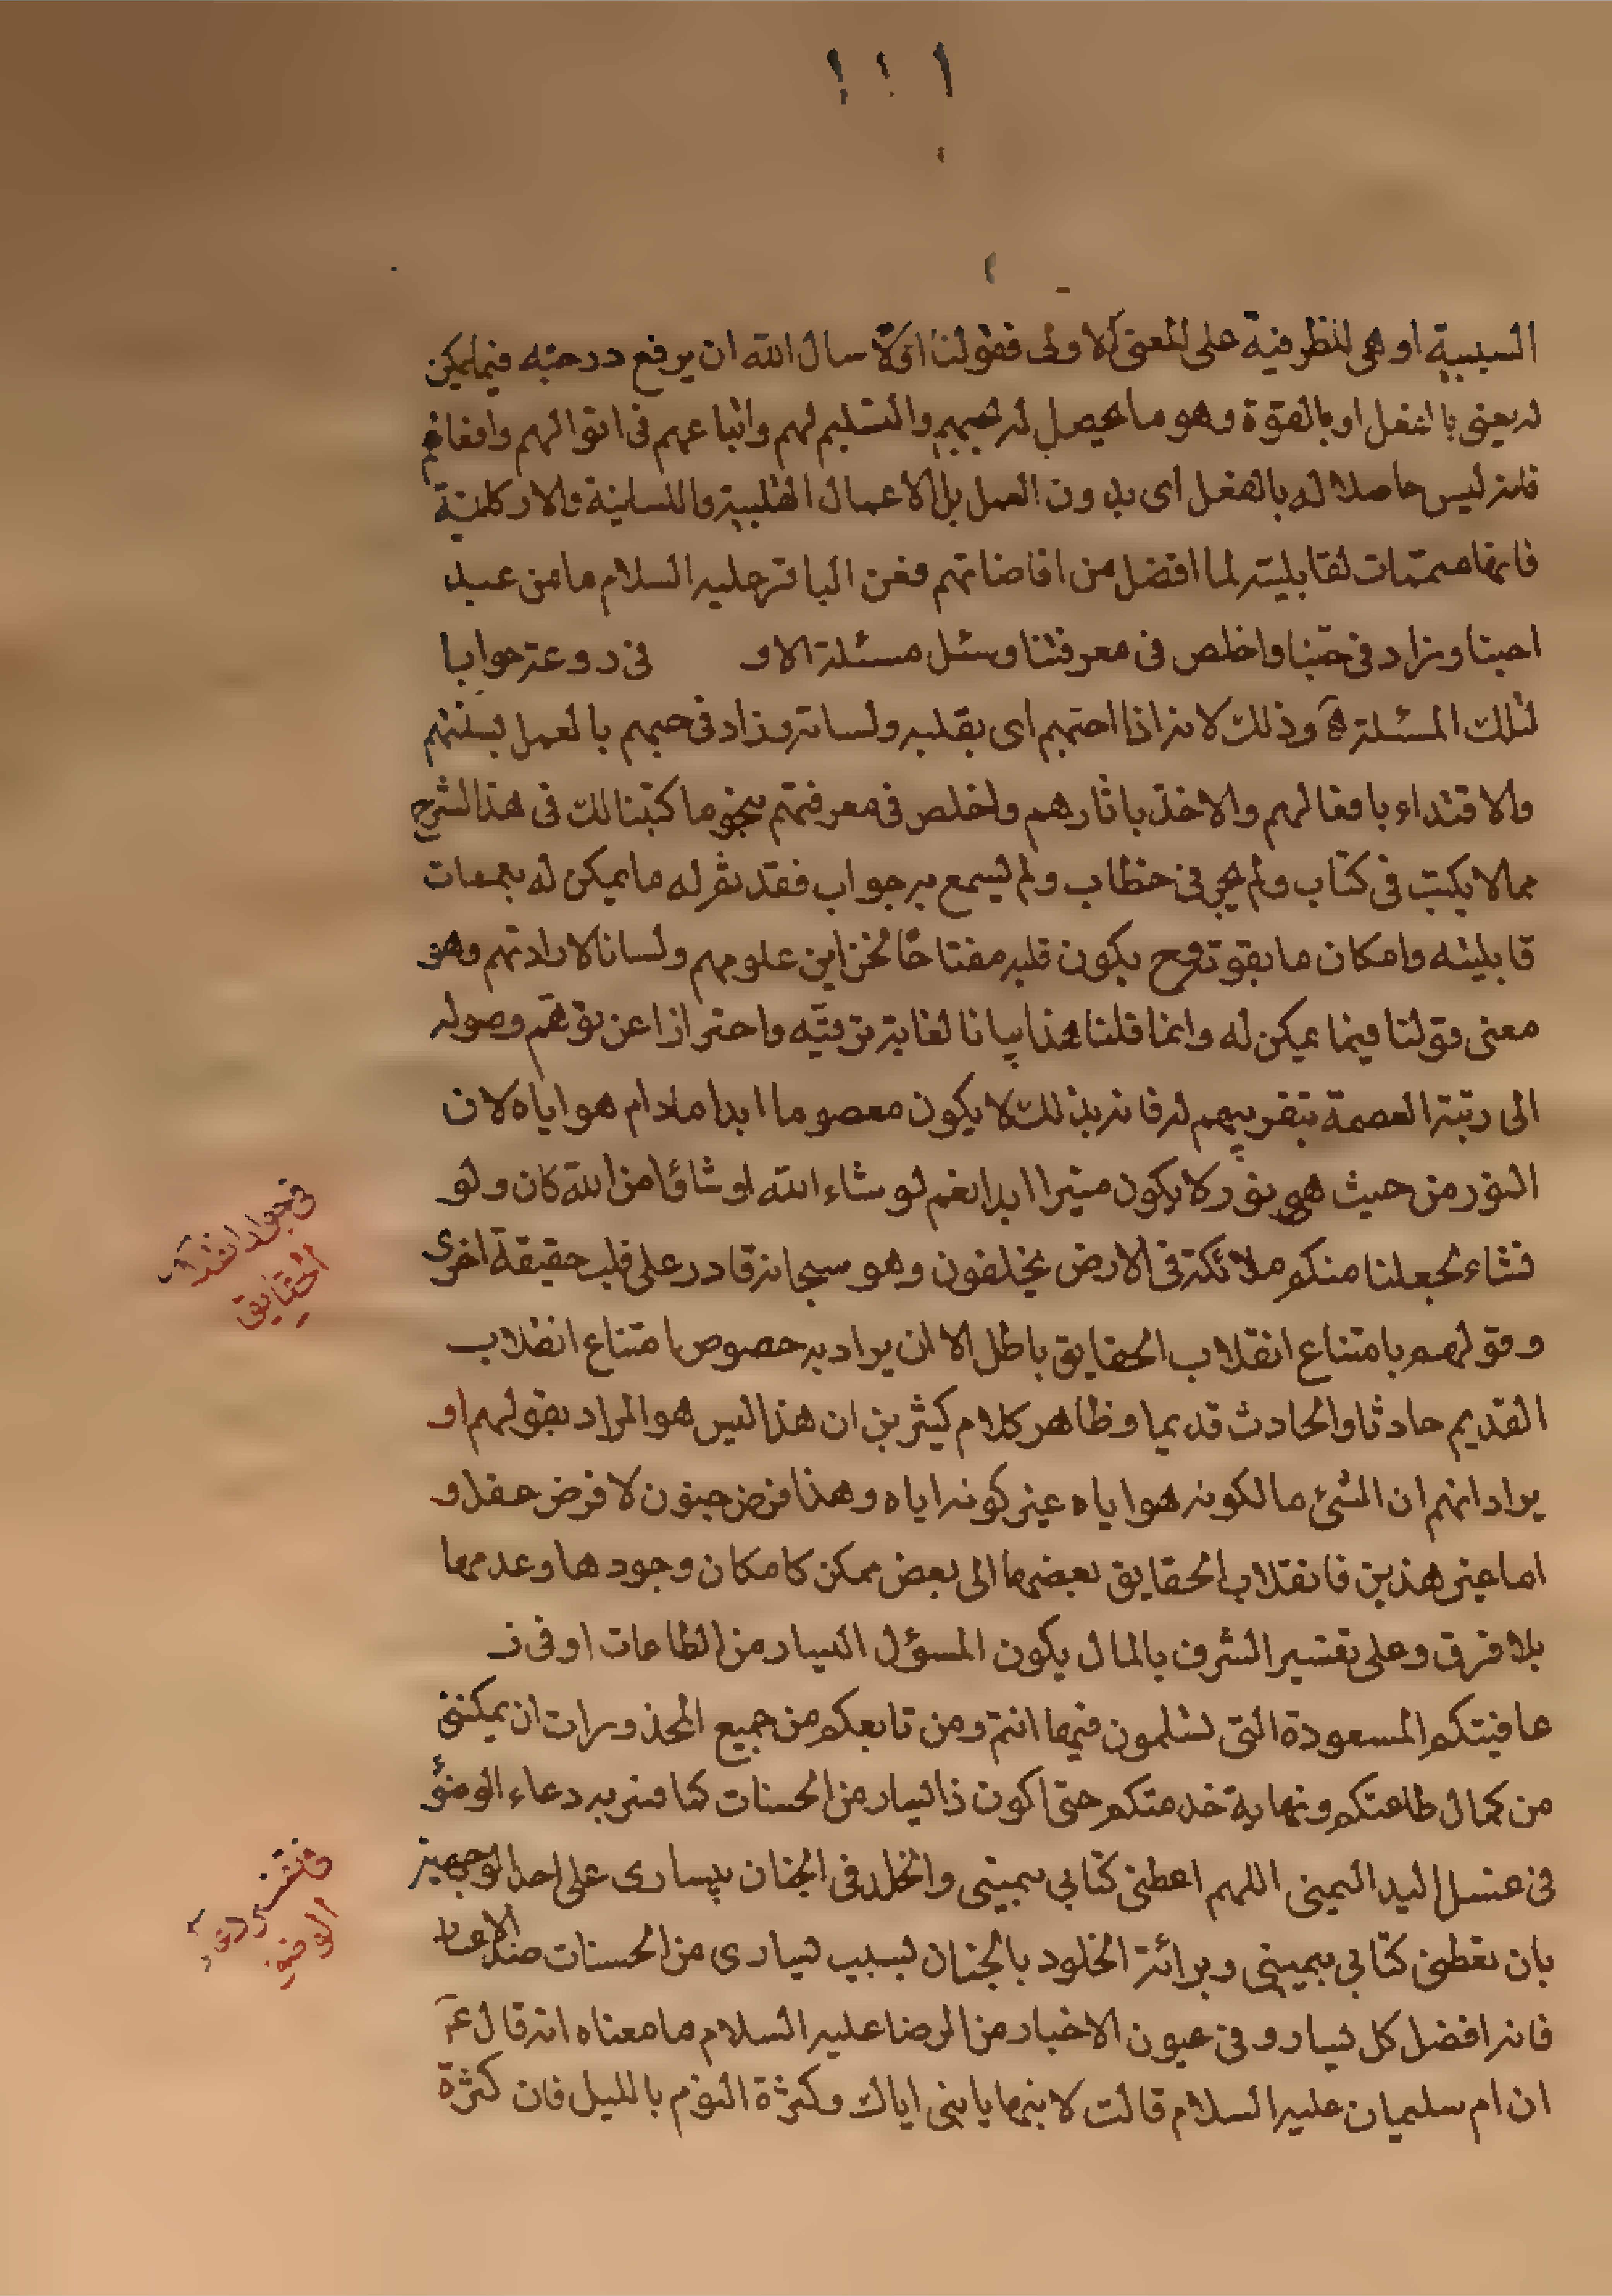 السببية او هى للظرفية على المعنى الاولى فقولنا اى لا سال الله ان يرفع درجته فيما يمكن
له يعنى بالفعل او بالقوة وهو ما يحصل له بحبهم والتسليم لهم واتباعهم فى اقوالهم وافعالهم
فانه ليس حاصلا له بالفعل اى بدون العمل بل الاعمال القلبية واللسانية والاركانية
فانها متممات لقابليته لما افضل من افاضاتهم فعن الباقر عليه السلام ما من عبد
احبنا وزاد فى حبنا واخلص فى معرفتنا وسئل مسئلة الا و فى روعه جوابا
لتلك المسئلة وذلك لانه اذا احبهم اى بقلبه ولسانه وزاد فى حبهم بالعمل بسنتهم
والاقتداء بافعالهم والاخذ باثارهم واخلص فى معرفتهم بنحو ما كتبنا لك فى هذا الشرح
مما لا يكتب فى كتاب ولم يجر فى خطاب ولم يسمع به جواب فقد نقر له ما يمكن له بمتممات
قابليته وامكان ما بقوته وح يكون قلبه مفتاحا لخزاين علومهم ولسانا لارادتهم وهو
معنى قولنا فيما يمكن له وانما قلنا هذا بيانا لغاية ترقيه واحترازا عن توهم وصوله
الى رتبة العصمة بتقريبهم له فانه بذلك لا يكون معصوما ابدا مادام هو اياه لان
النور من حيث هو نور لا يكون منيرا ابدا نعم لو شاء الله او شاؤا من الله كان ولو
نشاء لجعلنا منكم ملائكة فى الارض يخلفون وهو سبحانه قادر على قلب حقيقة اخرى
وقولهم بامتناع انقلاب الحقايق باطل الا ان يراد به خصوص امتناع انقلاب
القديم حادثا والحادث قديما وظاهر كلام كثيرين ان هذا ليس هو المراد بقولهم او
يراد انهم ان الشئ ما لكونه هو اياه غير كونه اياه وهذا فرض جنون لا فرض عقل و
اما غير هذين فانقلاب الحقايق بعضها الى بعض ممكن كامكان وجودها وعدمها
بلا فرق وعلى تفسير الشرف بالمال يكون المسؤل اليسار من الطاعات او فى
عافيتكم المسعودة التى تسلمون فيها انتم ومن تابعكم من جميع المحذورات ان يمكننى
من كمال طاعتكم ونهاية خدمتكم حتى اكون ذا يسار من الحسنات كما فسر به دعاء الوضوء
فى غسل اليد اليمنى اللهم اعطنى كتابى بيمينى والخلد فى الجنان بيسارى على احد الوجهين
بان تعطنى كتابى بيمينى وبرائة الخلود بالجنان بسبب يسارى من الحسنات
فانه افضل كل يسار و فى عيون الاخبار من الرضا عليه السلام ما معناه انه قال
ان ام سليمان عليه السلام قالت لابنها يابنى اياك وكثرة النوم بالليل فان كثرة
فى جواز انقلاب
الحقايق
فى تفسير دعاء
الوضوء